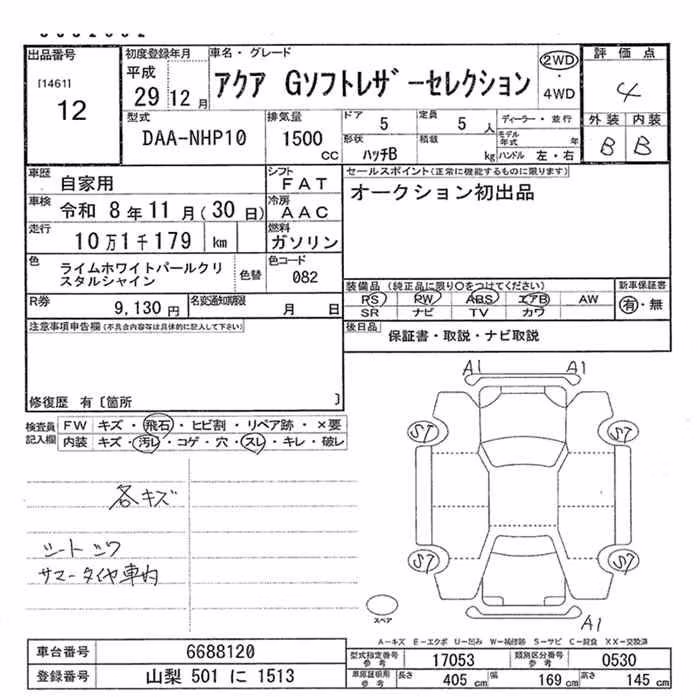 出品番号
[1461]
12
初度登録年月
平成
29 12 月
車名・グレード
アクア Gソフトレザーセレクション
2WD
・
4WD
評価点
4
外装 内装
B B
型式
DAA-NHP10
排気量
1500
cc
ドア
5
定員
5 人
ディーラー・並行
モデル年式 年
形状
ハッチB
積載
kg
ハンドル 左・右
車歴
自家用
シフト
FAT
車検
令和 8年11月(30日)
冷房
AAC
走行
10万1千179 km
燃料
ガソリン
色
ライムホワイトパールクリスタルシャイン
色替
色コード
082
R券
9,130円
名変通知期限
月 日
セールスポイント(正常に機能するものに限ります)
オークション初出品
装備品 (純正品に限り○をつけてください)
PS PW ABS エアB AW
SR ナビ TV カワ
新車保証書
有・無
後日品
保証書・取説・ナビ取説
注意事項申告欄(不具合内容等は具体的に記入して下さい)
修復歴 有〔箇所 〕
検査員記入欄
FW キズ・飛石・ヒビ割・リペア跡・×要
内装 キズ・汚レ・コゲ・穴・スレ・キレ・破レ
各キズ
シートシワ
サマータイヤ車内
A1 A1
S7 S7
S7 S7
A1
スペア
A-キズ E-エクボ U-凹み W-補修跡 S-サビ C-腐食 XX-交換済
車台番号
6688120
登録番号
山梨 501 に 1513
型式指定番号
参考
17053
類別区分番号
参考
0530
車庫証明用
参考
長さ
405 cm
幅
169 cm
高さ
145 cm